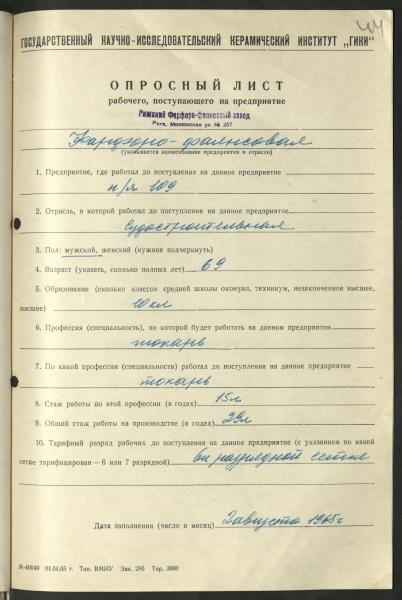 44
ГОСУДАРСТВЕННЫЙ НАУЧНО-ИССЛЕДОВАТЕЛЬСКИЙ КЕРАМИЧЕСКИЙ ИНСТИТУТ „ГИКИ“
ОПРОСНЫЙ ЛИСТ
рабочего, поступающего на предприятие
Рижский Фарфоро-фаянсовый завод
Рига, Московская ул. № 257
фаянсовая
(указывается наименование предприятия и отрасли)
1. Предприятие, где работал до поступления на данное предприятие
п/я 109
2. Отрасль, в которой работал до поступления на данное предприятие
Судостроительная
3. Пол: мужской, женский (нужное подчеркнуть)
4. Возраст (указать, сколько полных лет) 69
5. Образование (сколько классов средней школы окончил, техникум, незаконченное высшее,
высшее) 10 кл
6. Профессия (специальность), по которой будет работать на данном предприятии
токарь
7. По какой профессии (специальности) работал до поступления на данное предприятие
токарь
8. Стаж работы по этой профессии (в годах) 15л
9. Общий стаж работы на производстве (в годах) 29л
10. Тарифный разряд рабочих до поступления на данное предприятие (с указанием по какой
сетке тарифицирован — 6 или 7 разрядной) разрядной сетке
Дата заполнения (число и месяц) 2 августа 1965г
М-40049 01.04.65 г. Тип. ВМИУ Зак. 286 Тир. 3000